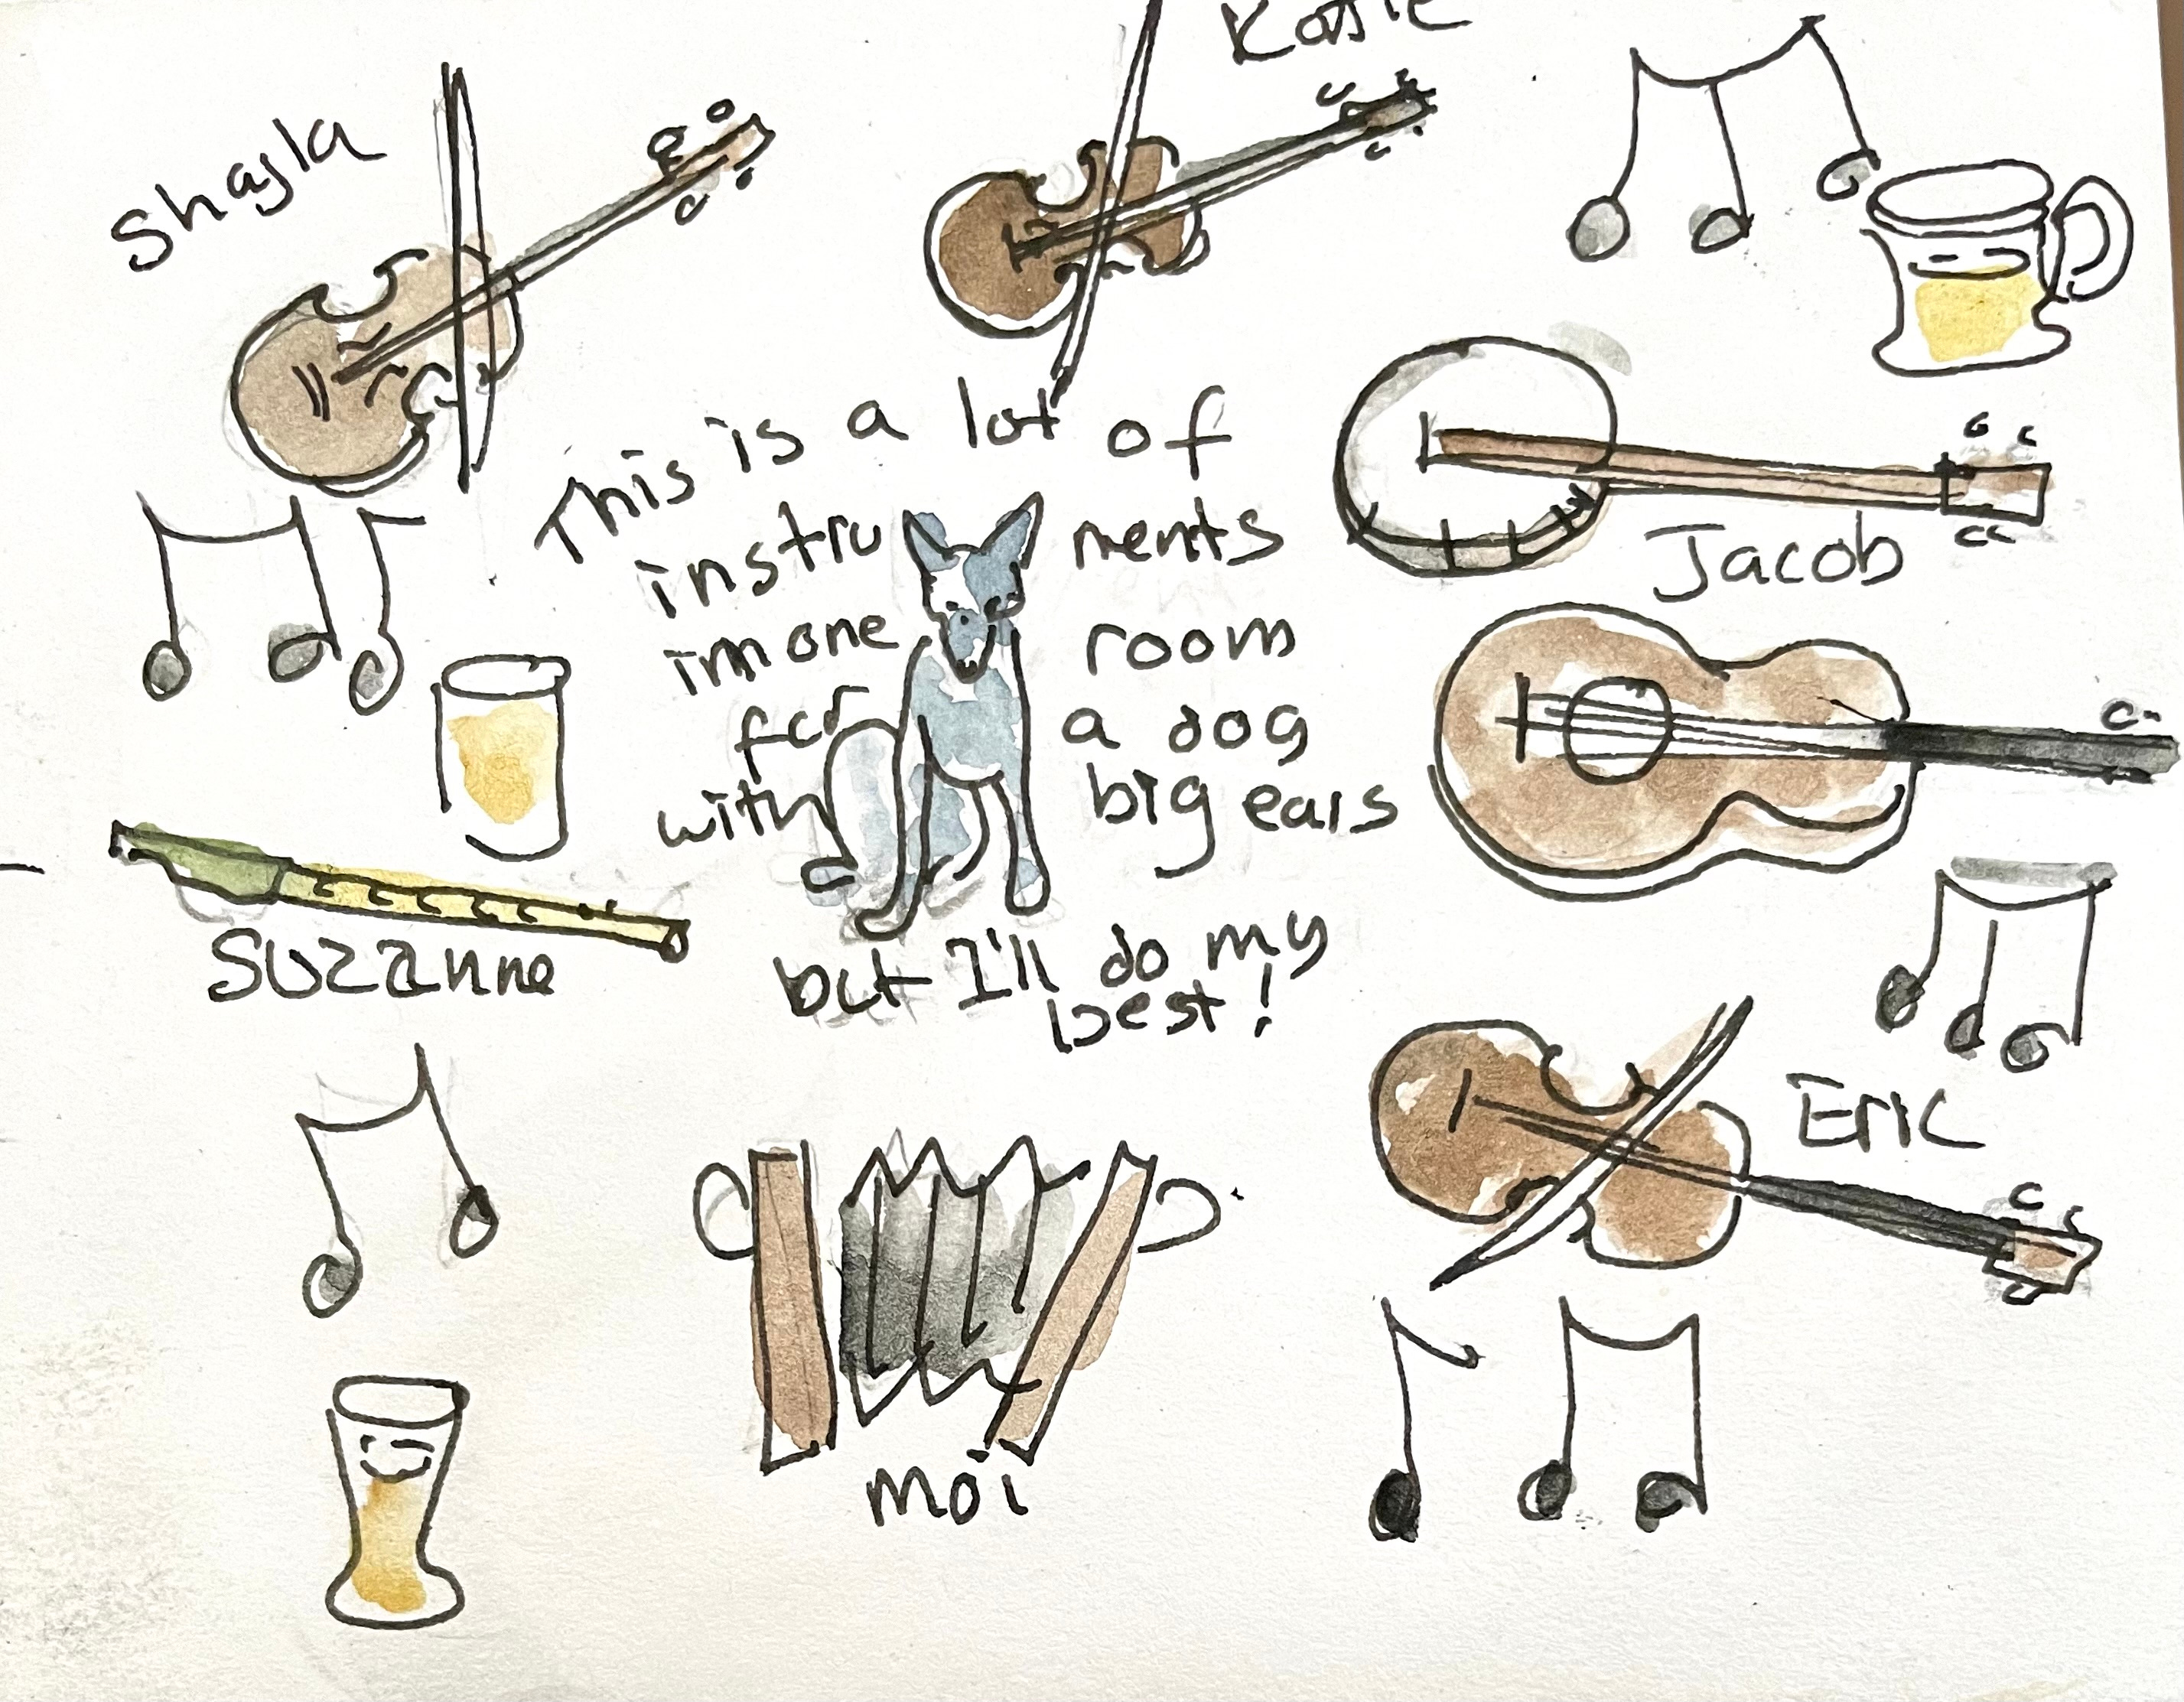 Shayla
This is a lot of
instru ments
in one room
for a dog
with big ears
but I'll do my
best!
Jacob
Suzanne
Eric
moi